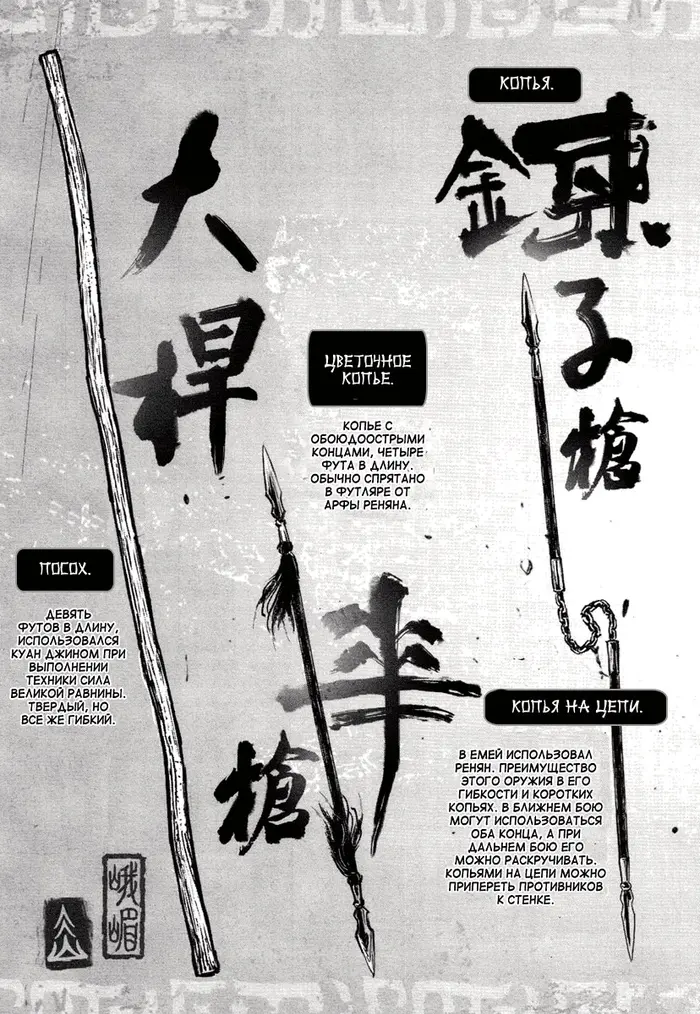 КОПЬЯ.
鍊
子
槍
大
桿
ЦВЕТОЧНОЕ
КОПЬЕ.
КОПЬЕ С
ОБОЮДООСТРЫМИ
КОНЦАМИ, ЧЕТЫРЕ
ФУТА В ДЛИНУ.
ОБЫЧНО СПРЯТАНО
В ФУТЛЯРЕ ОТ
АРФЫ РЕНЯНА.
槍
ПОСОХ.
ДЕВЯТЬ
ФУТОВ В ДЛИНУ,
ИСПОЛЬЗОВАЛСЯ
КУАН ДЖИНОМ ПРИ
ВЫПОЛНЕНИИ
ТЕХНИКИ СИЛА
ВЕЛИКОЙ РАВНИНЫ.
ТВЕРДЫЙ, НО
ВСЕ ЖЕ ГИБКИЙ.
КОПЬЯ НА ЦЕПИ.
В ЕМЕЙ ИСПОЛЬЗОВАЛ
РЕНЯН. ПРЕИМУЩЕСТВО
ЭТОГО ОРУЖИЯ В ЕГО
ГИБКОСТИ И КОРОТКИХ
КОПЬЯХ. В БЛИЖНЕМ БОЮ
МОГУТ ИСПОЛЬЗОВАТЬСЯ
ОБА КОНЦА, А ПРИ
ДАЛЬНЕМ БОЮ ЕГО
МОЖНО РАСКРУЧИВАТЬ.
КОПЬЯМИ НА ЦЕПИ МОЖНО
ПРИПЕРЕТЬ ПРОТИВНИКОВ
К СТЕНКЕ.
峨嵋